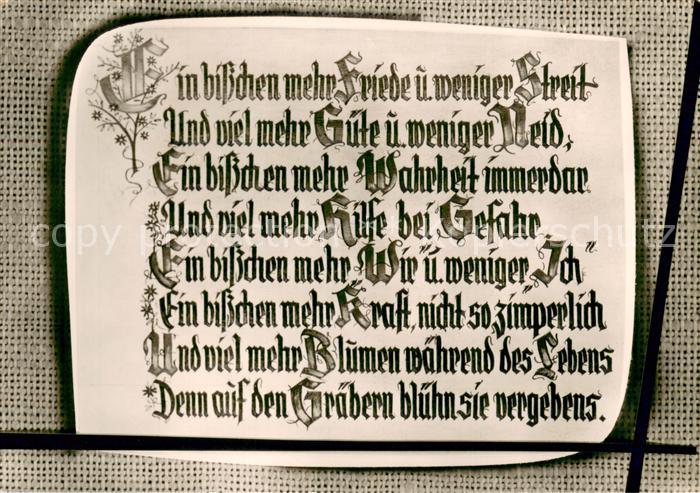 Ein bißchen mehr Friede u. weniger Streit
Und viel mehr Güte u. weniger Neid,
Ein bißchen mehr Wahrheit immerdar
Und viel mehr Hilfe bei Gefahr
Ein bißchen mehr „Wir" u. weniger „Ich"
Ein bißchen mehr Kraft, nicht so zimperlich
Und viel mehr Blumen während des Lebens
Denn auf den Gräbern blühn sie vergebens.